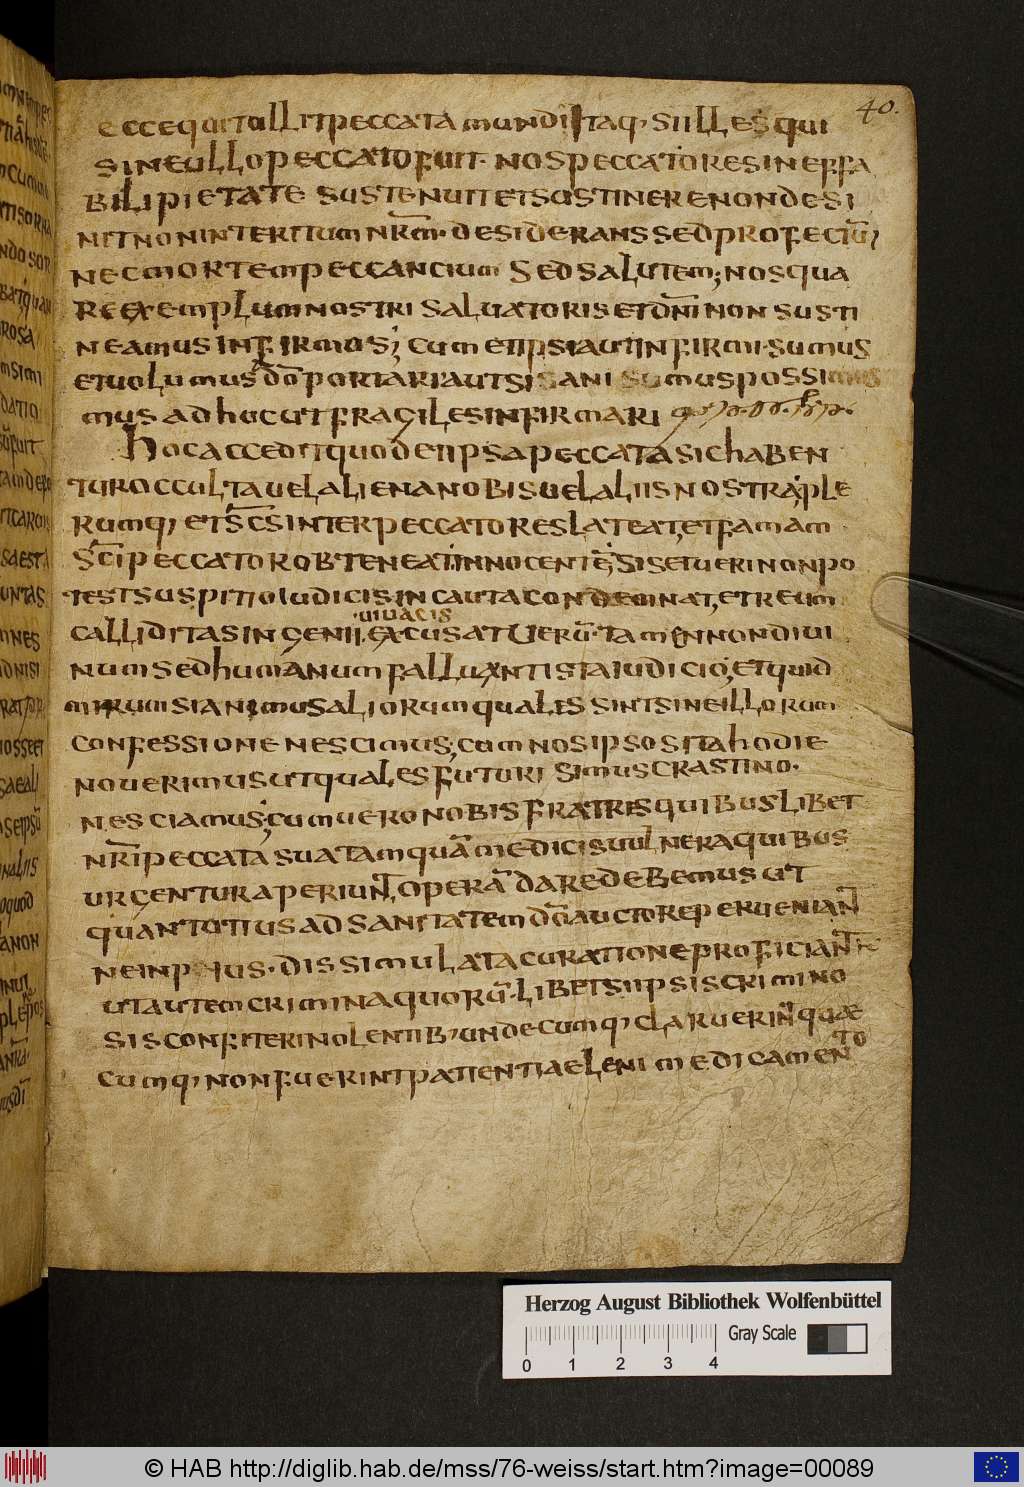 40.
eccequitollitpeccatamundiItaq, Siilles qui
Sineullopeccatofuit. Nospeccatoresineffa
Bilipietate Sustenuitetsustinerenondesi
NitNoninteritumnr̄m. desideranssedprofectū,
Necmortempeccancium Sedsalutem; Nosqua
Reexemplumnostri Saluatorisetdn̄inonsusti
Neamusinfirmos; Cum etipsiautinfirmi. Sumus
etuolumusadō portariautsi sani sumuspossimus
mus adhucutfragilesinfirmari
hocacceditquodetipsapeccatasichaben
turoccultauelalienanobisuelaliisnostra, ple
Rumq, etsc̄sinterpeccatoreslateat, etfamam
Sc̄ipeccatorobteneat. innocentē; Sisetuerinonpo
testsuspitioIudicisincautacondemnat, etreum
uiuacis
Calliditasingenii. excusatUerū. tamennondiui
Numsedhumanumfalluntistaiudicio; etquid
mirumsianimusaliorumqualessintsineillorum
Confessionenescimus; cumnosipsositahodie
Nouerimusutqualesfuturi Simuscrastino.
Nesciamus; cumueronobisfratrisquibuslibet
Nr̄ipeccatasuatamquāmedicisuulneraquibus
urgenturaperiunt, operādaredebemus ut
quantotiusadsanitatemdō auctoreperueniant
Neinpeius. dissimulatacurationeproficiant
utautemcriminaquorū. libetsiipsiscrimino
Sisconfiterinolentib, undecumq, claruerintquae
Cumq, nonfuerintpatientiaelenimedicamento
Herzog August Bibliothek Wolfenbüttel
Gray Scale
0 1 2 3 4
© HAB http://diglib.hab.de/mss/76-weiss/start.htm?image=00089